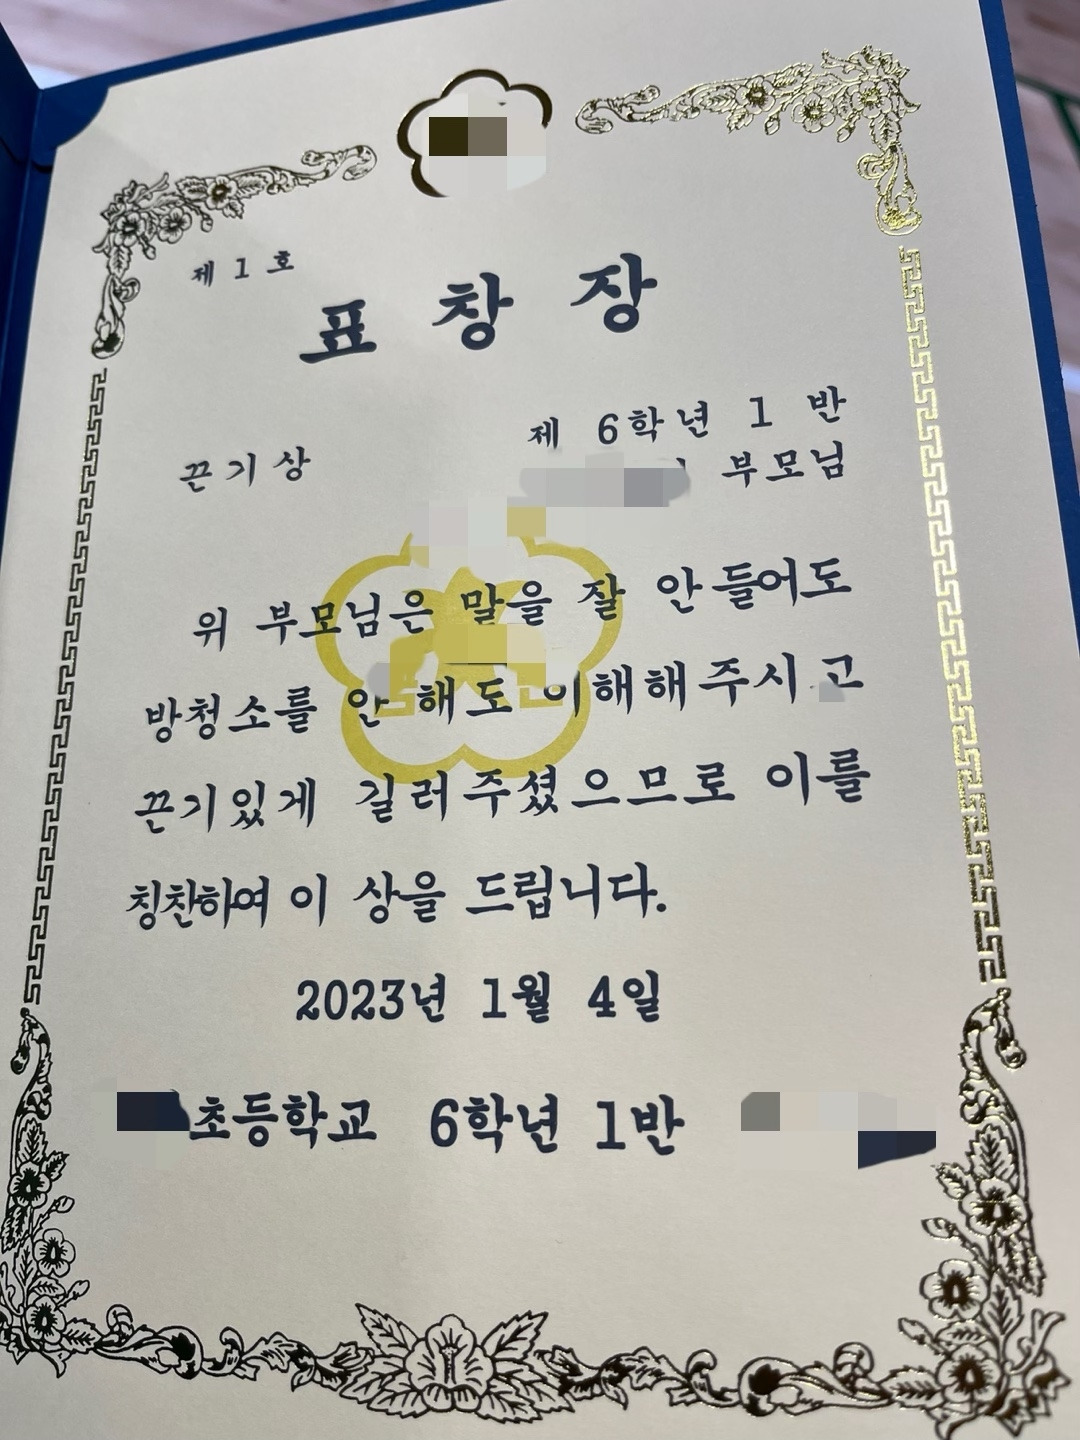 제 1 호
표 창 장
제 6학년 1 반
끈기상 부모님
위 부모님은 말을 잘 안들어도
방청소를 안 해도 이해해주시고
끈기있게 길러주셨으므로 이를
칭찬하여 이 상을 드립니다.
2023년 1월 4일
초등학교 6학년 1반